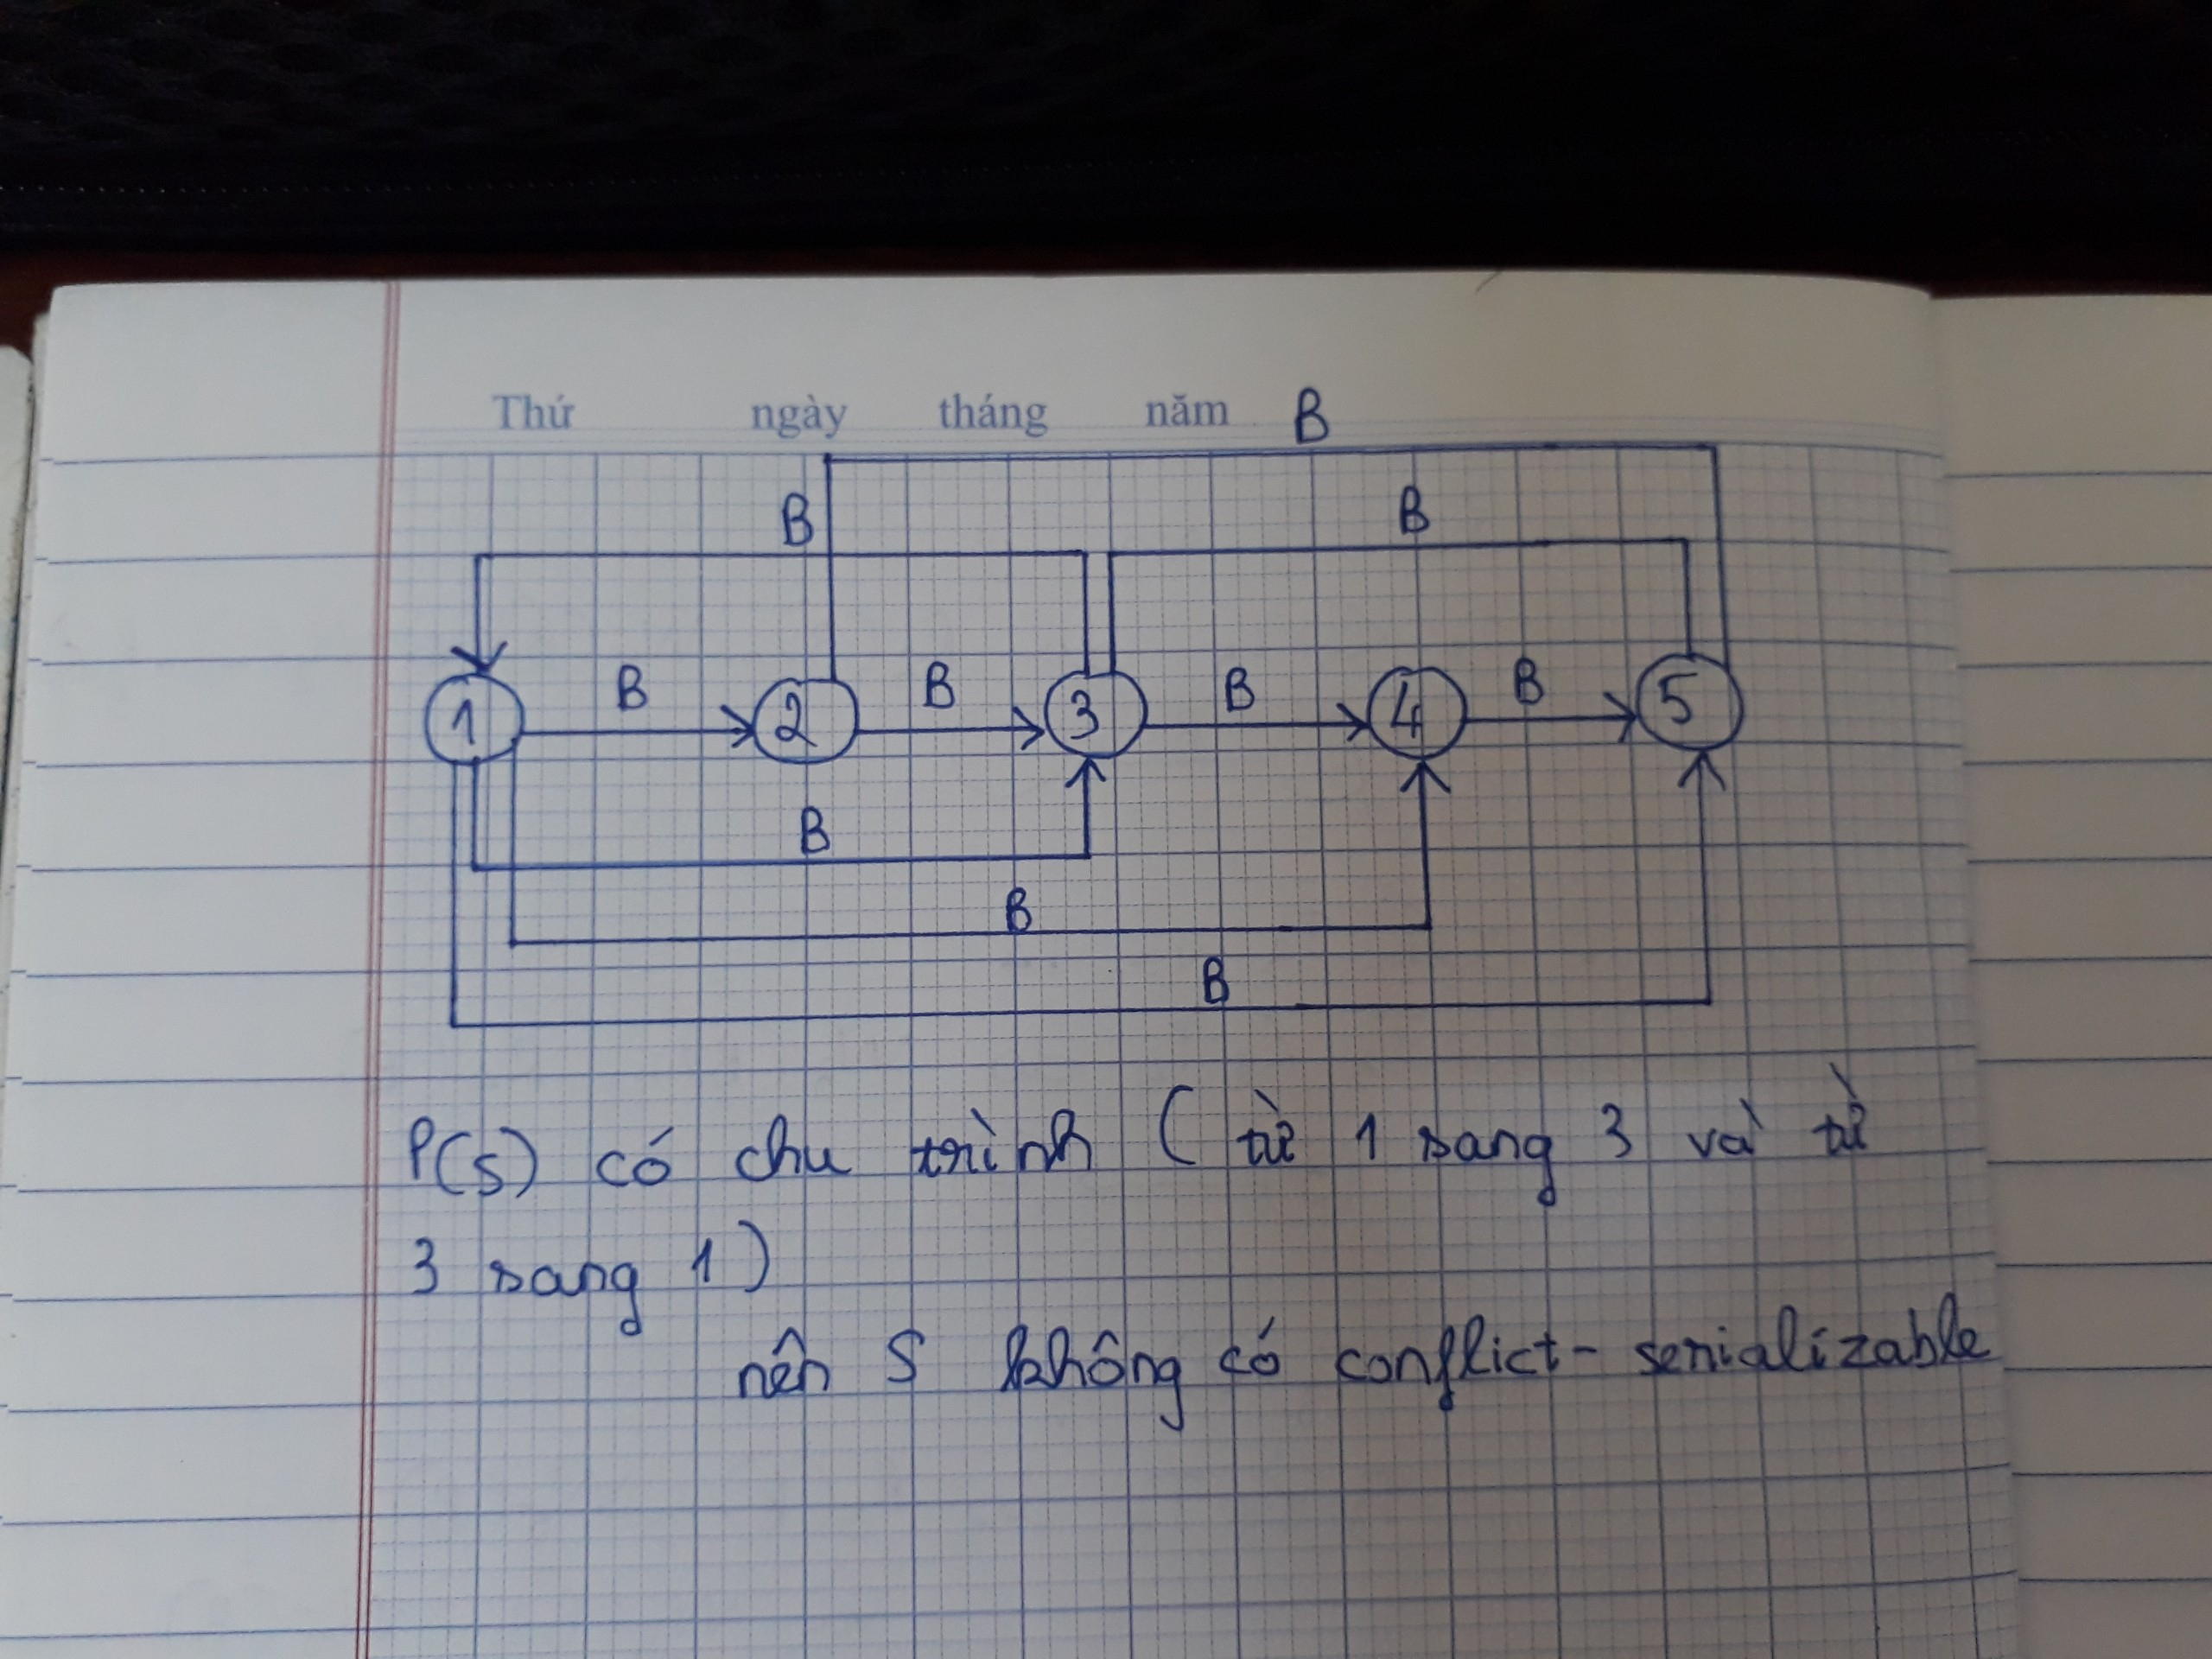 Thứ ngày tháng năm B
B B
1 B 2 B 3 B 4 B 5
B
B
B
P(S) có chu trình ( từ 1 sang 3 và từ
3 sang 1 )
nên S không có conflict - serializable